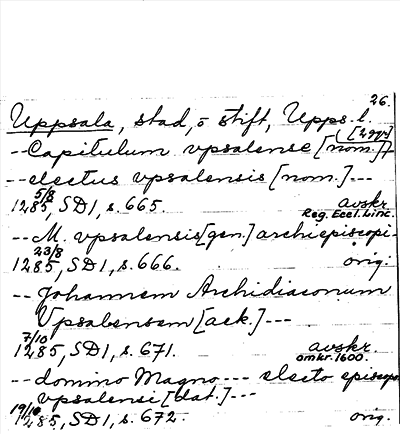 26.
Uppsala, stad, o stift, Upps. l.
([2 ggr]
--Capitulum vpsalense [nom.]+
--electus vpsalensis [nom.]---
5/8
1285, SD1, s. 665. avskr.
Reg. Eccl. Linc.
--M. vpsalensis [gen.] archiepiscopi-
23/8
1285, SD1, s. 666. orig.
-- Johannem Archidiaconum
Vpsalensem [ack.] ---
7/10
1285, SD1, s. 671. avskr.
omkr. 1600.
--domino Magno --- electo episcopo
vpsalensi [dat.]---
19/10
1285, SD1, s. 672. orig.